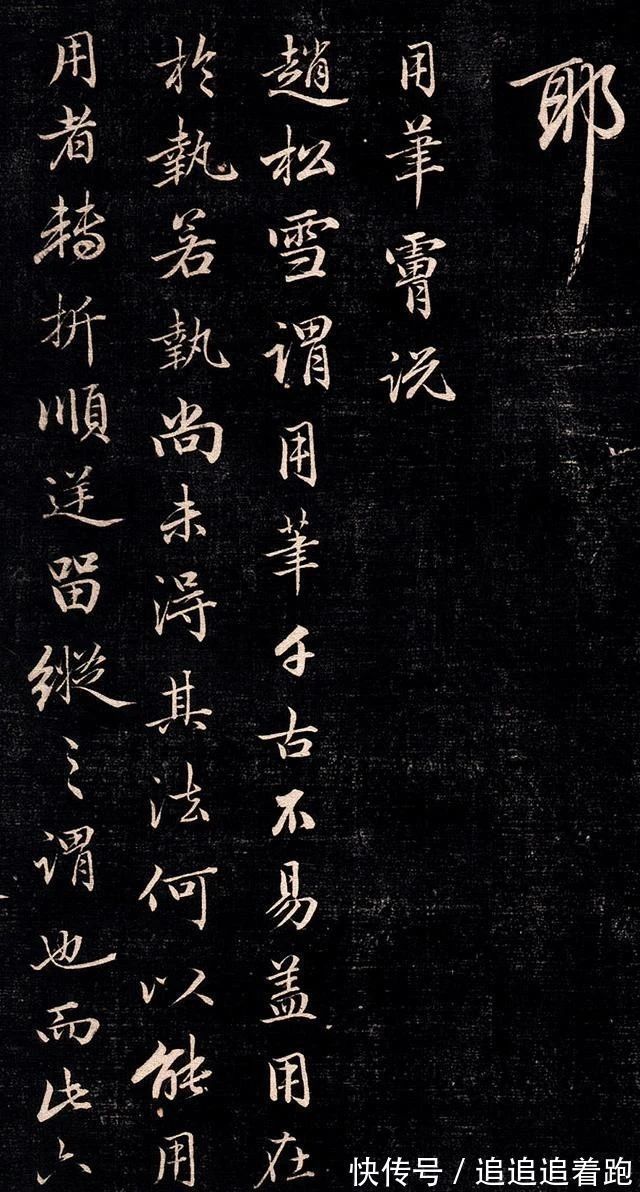 耶
用筆膚说
趙松雪謂用筆千古不易盖用在
於執若執尚未得其法何以能用
用者轉折順逆留縱之謂也而此六
快传号 / 追追追着跑